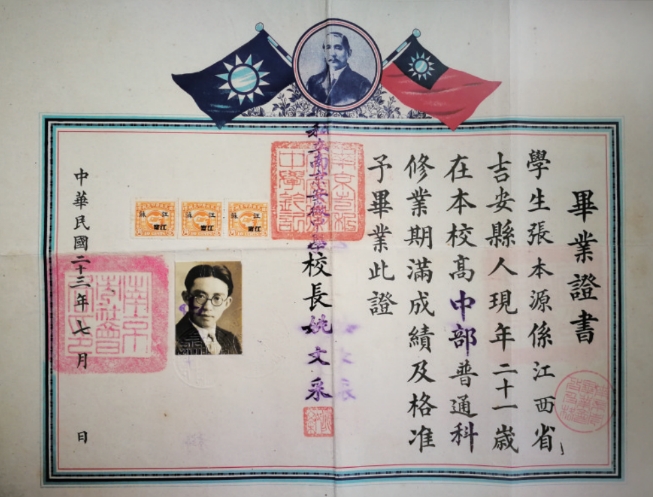 畢業證書
學生張本源係江西省
吉安縣人現年二十一歲
在本校高中部普通科
修業期滿成績及格准
予畢業此證
私立南京安徽中學校長姚文采
中華民國二十三年七月 日